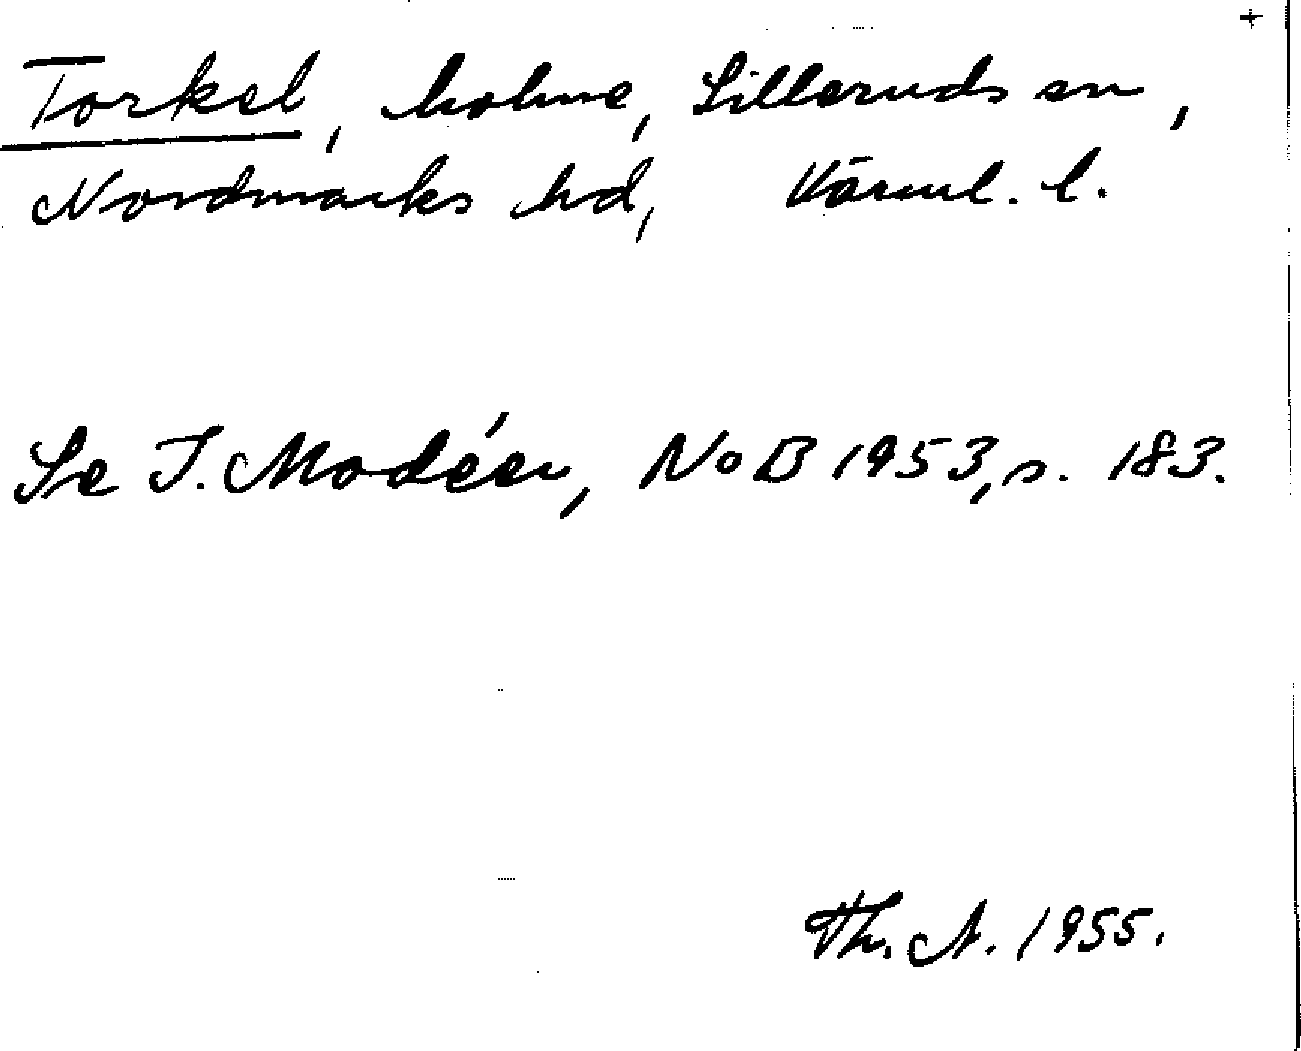 +
Torkel, holme, Silleruds sn,
Nordmarks hd, Värml. l.
Se I. Modéer, NoB 1953, s. 183.
Th. A. 1955.